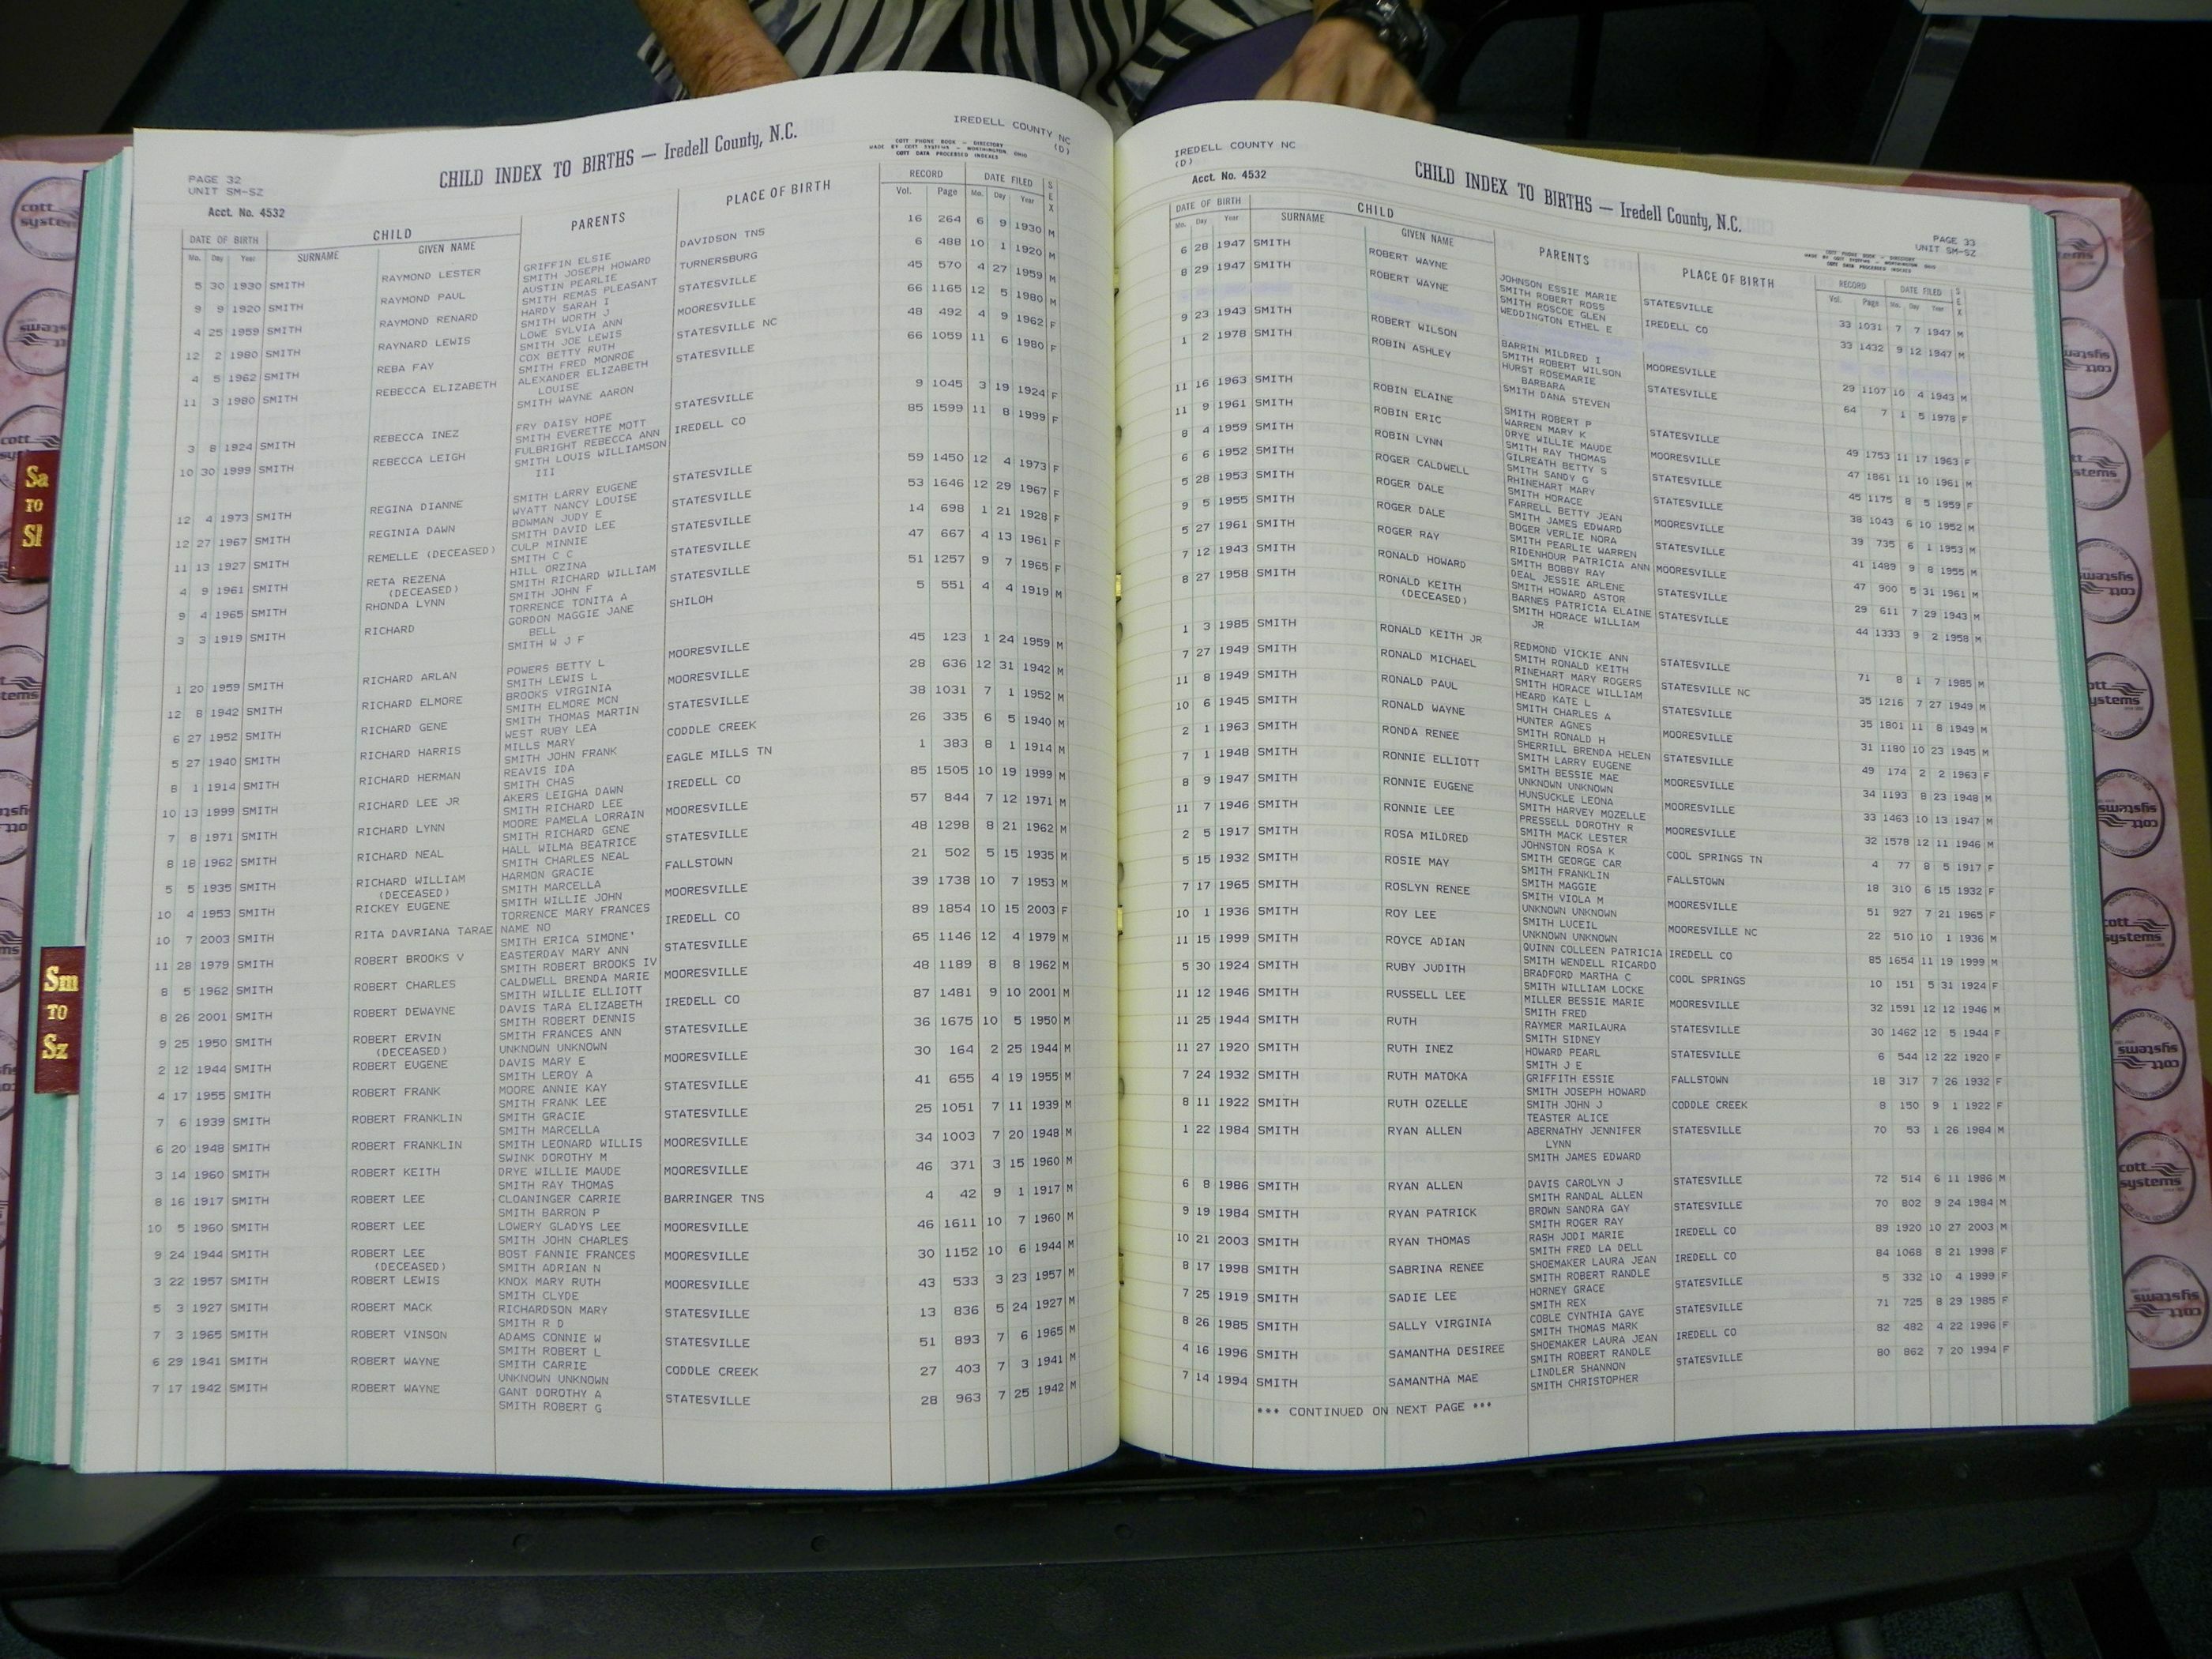 IREDELL COUNTY NC
(D)
CHILD INDEX TO BIRTHS — Iredell County, N.C.
COTT PHONE BOOK - DIRECTORY
MADE BY COTT SYSTEMS - WORTHINGTON, OHIO
COTT DATA PROCESSED INDEXES
PAGE 32
UNIT SM-SZ
Acct. No. 4532
DATE OF BIRTH CHILD PARENTS PLACE OF BIRTH RECORD DATE FILED SEX
Mo. Day Year SURNAME GIVEN NAME Vol. Page Mo. Day Year
5 30 1930 SMITH RAYMOND LESTER GRIFFIN ELSIE DAVIDSON TNS 16 264 6 9 1930 M
SMITH JOSEPH HOWARD
9 9 1920 SMITH RAYMOND PAUL AUSTIN PEARLIE TURNERSBURG 6 488 10 1 1920 M
SMITH REMAS PLEASANT
4 25 1959 SMITH RAYMOND RENARD HARDY SARAH I STATESVILLE 45 570 4 27 1959 M
SMITH WORTH J
12 2 1980 SMITH RAYNARD LEWIS LOWE SYLVIA ANN MOORESVILLE 66 1165 12 5 1980 M
SMITH JOE LEWIS
4 5 1962 SMITH REBA FAY COX BETTY RUTH STATESVILLE NC 48 492 4 9 1962 F
SMITH FRED MONROE
11 3 1980 SMITH REBECCA ELIZABETH ALEXANDER ELIZABETH STATESVILLE 66 1059 11 6 1980 F
LOUISE
SMITH WAYNE AARON
3 8 1924 SMITH REBECCA INEZ FRY DAISY HOPE STATESVILLE 9 1045 3 19 1924 F
SMITH EVERETTE MOTT
10 30 1999 SMITH REBECCA LEIGH FULBRIGHT REBECCA ANN IREDELL CO 85 1599 11 8 1999 F
SMITH LOUIS WILLIAMSON
III
12 4 1973 SMITH REGINA DIANNE SMITH LARRY EUGENE STATESVILLE 59 1450 12 4 1973 F
WYATT NANCY LOUISE
12 27 1967 SMITH REGINIA DAWN BOWMAN JUDY E STATESVILLE 53 1646 12 29 1967 F
SMITH DAVID LEE
11 13 1927 SMITH REMELLE (DECEASED) CULP MINNIE STATESVILLE 14 698 1 21 1928 F
SMITH C C
4 9 1961 SMITH RETA REZENA HILL ORZINA STATESVILLE 47 667 4 13 1961 F
(DECEASED) SMITH RICHARD WILLIAM
9 4 1965 SMITH RHONDA LYNN SMITH JOHN F STATESVILLE 51 1257 9 7 1965 F
TORRENCE TONITA A
3 3 1919 SMITH RICHARD GORDON MAGGIE JANE SHILOH 5 551 4 4 1919 M
BELL
SMITH W J F
1 20 1959 SMITH RICHARD ARLAN POWERS BETTY L MOORESVILLE 45 123 1 24 1959 M
SMITH LEWIS L
12 8 1942 SMITH RICHARD ELMORE BROOKS VIRGINIA MOORESVILLE 28 636 12 31 1942 M
SMITH ELMORE MCN
6 27 1952 SMITH RICHARD GENE SMITH THOMAS MARTIN STATESVILLE 38 1031 7 1 1952 M
WEST RUBY LEA
5 27 1940 SMITH RICHARD HARRIS MILLS MARY CODDLE CREEK 26 335 6 5 1940 M
SMITH JOHN FRANK
8 1 1914 SMITH RICHARD HERMAN REAVIS IDA EAGLE MILLS TN 1 383 8 1 1914 M
SMITH CHAS
10 13 1999 SMITH RICHARD LEE JR AKERS LEIGHA DAWN IREDELL CO 85 1505 10 19 1999 M
SMITH RICHARD LEE
7 8 1971 SMITH RICHARD LYNN MOORE PAMELA LORRAIN MOORESVILLE 57 844 7 12 1971 M
SMITH RICHARD GENE
8 18 1962 SMITH RICHARD NEAL HALL WILMA BEATRICE STATESVILLE 48 1298 8 21 1962 M
SMITH CHARLES NEAL
5 5 1935 SMITH RICHARD WILLIAM HARMON GRACIE FALLSTOWN 21 502 5 15 1935 M
(DECEASED) SMITH MARCELLA
10 4 1953 SMITH RICKEY EUGENE SMITH WILLIE JOHN MOORESVILLE 39 1738 10 7 1953 M
TORRENCE MARY FRANCES
10 7 2003 SMITH RITA DAVRIANA TARAE NAME NO IREDELL CO 89 1854 10 15 2003 F
SMITH ERICA SIMONE'
11 28 1979 SMITH ROBERT BROOKS V EASTERDAY MARY ANN STATESVILLE 65 1146 12 4 1979 M
SMITH ROBERT BROOKS IV
8 5 1962 SMITH ROBERT CHARLES CALDWELL BRENDA MARIE MOORESVILLE 48 1189 8 8 1962 M
SMITH WILLIE ELLIOTT
8 26 2001 SMITH ROBERT DEWAYNE DAVIS TARA ELIZABETH IREDELL CO 87 1481 9 10 2001 M
SMITH ROBERT DENNIS
9 25 1950 SMITH ROBERT ERVIN SMITH FRANCES ANN STATESVILLE 36 1675 10 5 1950 M
(DECEASED) UNKNOWN UNKNOWN
2 12 1944 SMITH ROBERT EUGENE DAVIS MARY E MOORESVILLE 30 164 2 25 1944 M
SMITH LEROY A
4 17 1955 SMITH ROBERT FRANK MOORE ANNIE KAY STATESVILLE 41 655 4 19 1955 M
SMITH FRANK LEE
7 6 1939 SMITH ROBERT FRANKLIN SMITH GRACIE STATESVILLE 25 1051 7 11 1939 M
SMITH MARCELLA
6 20 1948 SMITH ROBERT FRANKLIN SMITH LEONARD WILLIS MOORESVILLE 34 1003 7 20 1948 M
SWINK DOROTHY M
3 14 1960 SMITH ROBERT KEITH DRYE WILLIE MAUDE MOORESVILLE 46 371 3 15 1960 M
SMITH RAY THOMAS
8 16 1917 SMITH ROBERT LEE CLOANINGER CARRIE BARRINGER TNS 4 42 9 1 1917 M
SMITH BARRON P
10 5 1960 SMITH ROBERT LEE LOWERY GLADYS LEE MOORESVILLE 46 1611 10 7 1960 M
SMITH JOHN CHARLES
9 24 1944 SMITH ROBERT LEE BOST FANNIE FRANCES MOORESVILLE 30 1152 10 6 1944 M
(DECEASED) SMITH ADRIAN N
3 22 1957 SMITH ROBERT LEWIS KNOX MARY RUTH MOORESVILLE 43 533 3 23 1957 M
SMITH CLYDE
5 3 1927 SMITH ROBERT MACK RICHARDSON MARY STATESVILLE 13 836 5 24 1927 M
SMITH R D
7 3 1965 SMITH ROBERT VINSON ADAMS CONNIE W STATESVILLE 51 893 7 6 1965 M
SMITH ROBERT L
6 29 1941 SMITH ROBERT WAYNE SMITH CARRIE CODDLE CREEK 27 403 7 3 1941 M
UNKNOWN UNKNOWN
7 17 1942 SMITH ROBERT WAYNE GANT DOROTHY A STATESVILLE 28 963 7 25 1942 M
SMITH ROBERT G
IREDELL COUNTY NC
(D)
CHILD INDEX TO BIRTHS — Iredell County, N.C.
Acct. No. 4532
PAGE 33
UNIT SM-SZ
COTT PHONE BOOK - DIRECTORY
MADE BY COTT SYSTEMS - WORTHINGTON, OHIO
COTT DATA PROCESSED INDEXES
DATE OF BIRTH CHILD PARENTS PLACE OF BIRTH RECORD DATE FILED SEX
Mo. Day Year SURNAME GIVEN NAME Vol. Page Mo. Day Year
6 28 1947 SMITH ROBERT WAYNE JOHNSON ESSIE MARIE STATESVILLE 33 1031 7 7 1947 M
SMITH ROBERT ROSS
8 29 1947 SMITH ROBERT WAYNE SMITH ROSCOE GLEN IREDELL CO 33 1432 9 12 1947 M
WEDDINGTON ETHEL E
9 23 1943 SMITH ROBERT WILSON BARRIN MILDRED I MOORESVILLE 29 1107 10 4 1943 M
SMITH ROBERT WILSON
1 2 1978 SMITH ROBIN ASHLEY HURST ROSEMARIE STATESVILLE 64 7 1 5 1978 F
BARBARA
SMITH DANA STEVEN
11 16 1963 SMITH ROBIN ELAINE SMITH ROBERT P STATESVILLE 49 1753 11 17 1963 F
WARREN MARY K
11 9 1961 SMITH ROBIN ERIC DRYE WILLIE MAUDE MOORESVILLE 47 1861 11 10 1961 M
SMITH RAY THOMAS
8 4 1959 SMITH ROBIN LYNN GILREATH BETTY S STATESVILLE 45 1175 8 5 1959 F
SMITH SANDY G
6 6 1952 SMITH ROGER CALDWELL RHINEHART MARY MOORESVILLE 38 1043 6 10 1952 M
SMITH HORACE
5 28 1953 SMITH ROGER DALE FARRELL BETTY JEAN STATESVILLE 39 735 6 1 1953 M
SMITH JAMES EDWARD
9 5 1955 SMITH ROGER DALE BOGER VERLIE NORA MOORESVILLE 41 1489 9 8 1955 M
SMITH PEARLIE WARREN
5 27 1961 SMITH ROGER RAY RIDENHOUR PATRICIA ANN STATESVILLE 47 900 5 31 1961 M
SMITH BOBBY RAY
7 12 1943 SMITH RONALD HOWARD DEAL JESSIE ARLENE STATESVILLE 29 611 7 29 1943 M
SMITH HOWARD ASTOR
8 27 1958 SMITH RONALD KEITH BARNES PATRICIA ELAINE 44 1333 9 2 1958 M
(DECEASED) SMITH HORACE WILLIAM
JR
1 3 1985 SMITH RONALD KEITH JR REDMOND VICKIE ANN STATESVILLE 71 8 1 7 1985 M
SMITH RONALD KEITH
7 27 1949 SMITH RONALD MICHAEL RINEHART MARY ROGERS STATESVILLE NC 35 1216 7 27 1949 M
SMITH HORACE WILLIAM
11 8 1949 SMITH RONALD PAUL HEARD KATE L STATESVILLE 35 1801 11 8 1949 M
SMITH CHARLES A
10 6 1945 SMITH RONALD WAYNE HUNTER AGNES MOORESVILLE 31 1180 10 23 1945 M
SMITH RONALD H
2 1 1963 SMITH RONDA RENEE SHERRILL BRENDA HELEN STATESVILLE 49 174 2 2 1963 F
SMITH LARRY EUGENE
7 1 1948 SMITH RONNIE ELLIOTT SMITH BESSIE MAE MOORESVILLE 34 1193 8 23 1948 M
UNKNOWN UNKNOWN
8 9 1947 SMITH RONNIE EUGENE HUNSUCKLE LEONA MOORESVILLE 33 1463 10 13 1947 M
SMITH HARVEY MOZELLE
11 7 1946 SMITH RONNIE LEE PRESSELL DOROTHY R MOORESVILLE 32 1578 12 11 1946 M
SMITH MACK LESTER
2 5 1917 SMITH ROSA MILDRED JOHNSTON ROSA K COOL SPRINGS TN 4 77 8 5 1917 F
SMITH GEORGE CAR
5 15 1932 SMITH ROSIE MAY SMITH FRANKLIN FALLSTOWN 18 310 6 15 1932 F
SMITH MAGGIE
7 17 1965 SMITH ROSLYN RENEE SMITH VIOLA M MOORESVILLE 51 927 7 21 1965 F
UNKNOWN UNKNOWN
10 1 1936 SMITH ROY LEE SMITH LUCEIL MOORESVILLE NC 22 510 10 1 1936 M
UNKNOWN UNKNOWN
11 15 1999 SMITH ROYCE ADIAN QUINN COLLEEN PATRICIA IREDELL CO 85 1654 11 19 1999 M
SMITH WENDELL RICARDO
5 30 1924 SMITH RUBY JUDITH BRADFORD MARTHA C COOL SPRINGS 10 151 5 31 1924 F
SMITH WILLIAM LOCKE
11 12 1946 SMITH RUSSELL LEE MILLER BESSIE MARIE MOORESVILLE 32 1591 12 12 1946 M
SMITH FRED
11 25 1944 SMITH RUTH RAYMER MARILAURA STATESVILLE 30 1462 12 5 1944 F
SMITH SIDNEY
11 27 1920 SMITH RUTH INEZ HOWARD PEARL STATESVILLE 6 544 12 22 1920 F
SMITH J E
7 24 1932 SMITH RUTH MATOKA GRIFFITH ESSIE FALLSTOWN 18 317 7 26 1932 F
SMITH JOSEPH HOWARD
8 11 1922 SMITH RUTH OZELLE SMITH JOHN J CODDLE CREEK 8 150 9 1 1922 F
TEASTER ALICE
1 22 1984 SMITH RYAN ALLEN ABERNATHY JENNIFER STATESVILLE 70 53 1 26 1984 M
LYNN
SMITH JAMES EDWARD
6 8 1986 SMITH RYAN ALLEN DAVIS CAROLYN J STATESVILLE 72 514 6 11 1986 M
SMITH RANDAL ALLEN
9 19 1984 SMITH RYAN PATRICK BROWN SANDRA GAY STATESVILLE 70 802 9 24 1984 M
SMITH ROGER RAY
10 21 2003 SMITH RYAN THOMAS RASH JODI MARIE IREDELL CO 89 1920 10 27 2003 M
SMITH FRED LA DELL
8 17 1998 SMITH SABRINA RENEE SHOEMAKER LAURA JEAN IREDELL CO 84 1068 8 21 1998 F
SMITH ROBERT RANDLE
7 25 1919 SMITH SADIE LEE HORNEY GRACE STATESVILLE 5 332 10 4 1999 F
SMITH REX
8 26 1985 SMITH SALLY VIRGINIA COBLE CYNTHIA GAYE STATESVILLE 71 725 8 29 1985 F
SMITH THOMAS MARK
4 16 1996 SMITH SAMANTHA DESIREE SHOEMAKER LAURA JEAN IREDELL CO 82 482 4 22 1996 F
SMITH ROBERT RANDLE
7 14 1994 SMITH SAMANTHA MAE LINDLER SHANNON STATESVILLE 80 862 7 20 1994 F
SMITH CHRISTOPHER
*** CONTINUED ON NEXT PAGE ***
Sa
TO
Sl
Sm
TO
Sz
cott
systems